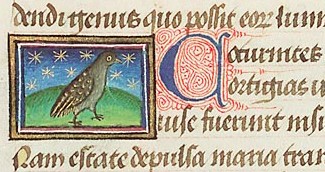 dendi genus quo possit eorum
Coturnices
ortigias
uise fuerunt nisi
Nam estate depulsa maria tran